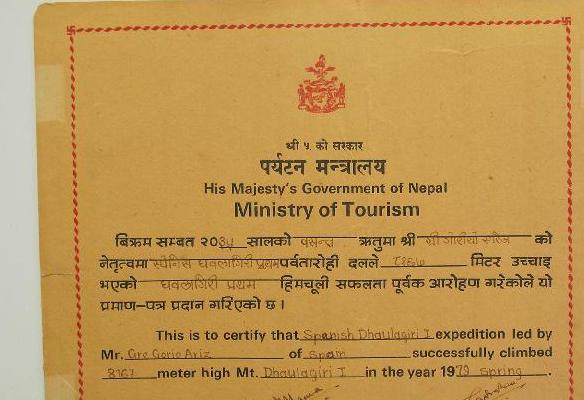 श्री ५ को सरकार
पर्यटन मन्त्रालय
His Majesty's Government of Nepal
Ministry of Tourism
बिक्रम सम्बत २०३५ सालको वसन्त ऋतुमा श्री को
नेतृत्वमा स्पेनिस धवलागिरी प्रथम पर्वतारोही दलले ८१६७ मिटर उच्चाइ
भएको धवलागिरी प्रथम हिमचूली सफलता पूर्वक आरोहण गरेकोले यो
प्रमाण-पत्र प्रदान गरिएको छ ।
This is to certify that Spanish Dhaulagiri I expedition led by
Mr. Gregorio Ariz of Spain successfully climbed
8167 meter high Mt. Dhaulagiri I in the year 1979 spring.